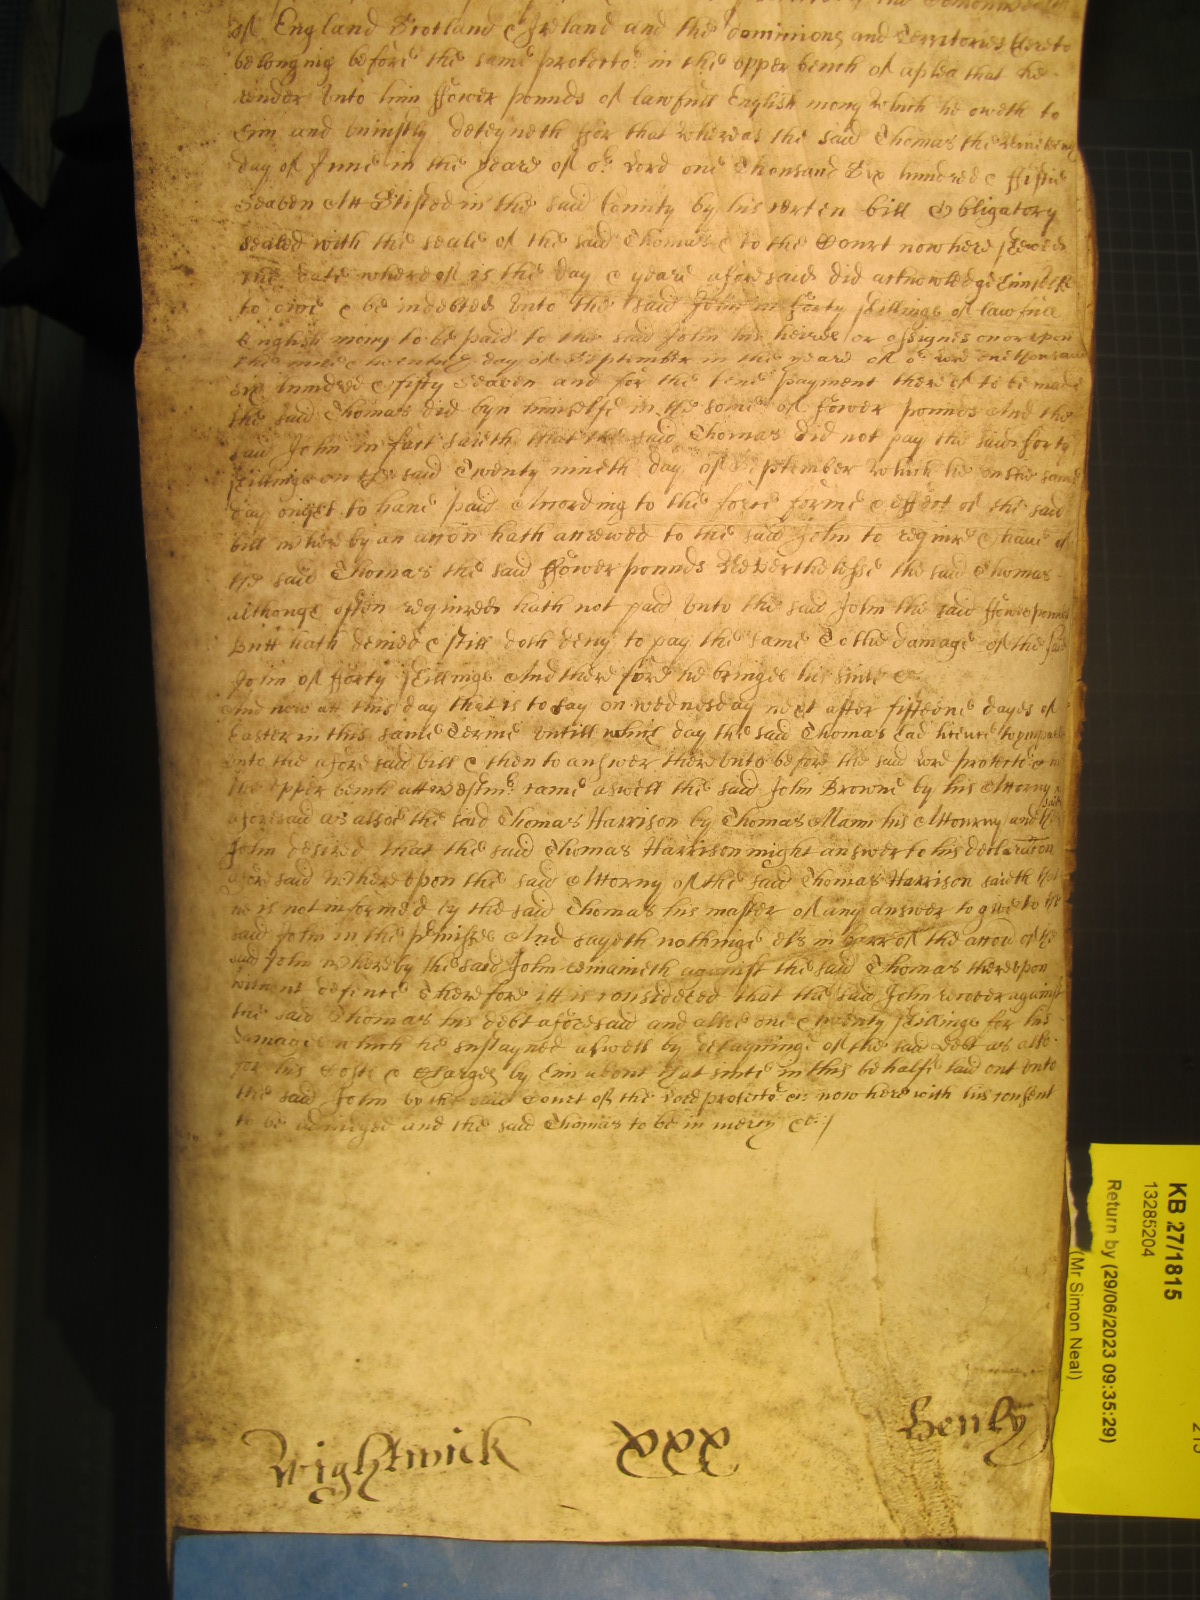 of the Comonwealth
of England Scotland & Ireland and the dominions and Territories thereto
belonging before the same protector in the upper bench of a plea that he
render unto him ffower pounds of lawfull English mony which he oweth to
him and uniustly deteyneth ffor that whereas the said Thomas the
day of June in the yeare of or Lord one Thousand Six hundred & ffiftie
Seaven Att Stisted in the said County by his certen bill Obligatory
sealed with the seale of the said Thomas & to the Court now here shewed
the date whereof is the day & yeare aforesaid did acknowledge himselfe
to owe & be indebted unto the said John in forty shillings of lawfull
English mony to be paid to the said John his heires or assignes on or upon
the nine & twentieth day of September in the yeare of or Lord one thousand
six hundred & fifty Seaven and for the true payment thereof to be made
the said Thomas did byn himselfe in the some of fower pounds And the
said John in fact saieth that the said Thomas did not pay the said forty
shillings on the said Twenty nineth day of September which he on the same
day ought to have paid According to the force forme & effect of the said
bill whereby an accon hath accrewed to the said John to require & have of
the said Thomas the said ffower pounds Neverthelesse the said Thomas
although often required hath not paid unto the said John the said ffower pounds
Butt hath denied & still doth deny to pay the same To the damage of the said
John of fforty shillings And therefore he bringes his suite &c
And now att this day that is to say on wednesday next after fifteene dayes of
Easter in this same Terme untill which day the said Thomas had licence to
unto the aforesaid bill & then to answer thereunto before the said Lord protector in
the upper bench att westmr came aswell the said John Browne by his Attorny
aforesaid as alsoe the said Thomas Harrison by Thomas Mann his Attourny and the said
John desired that the said Thomas Harrison might answer to his declaration
aforesaid Whereupon the said Attorny of the said Thomas Harrison saieth that
he is not informed by the said Thomas his master of any answer to give to the
said John in the premisses And sayeth nothinge els in barr of the accon of the
said John whereby the said John remaineth against the said Thomas thereupon
without defence Therefore itt is considered that the said John recover against
the said Thomas his debt aforesaid and alsoe one & twenty shillings for his
damages which he sustayned aswell by detayninge of the said debt as alsoe
for his Costs & Charges by him about that suite in this behalfe laid out unto
the said John by the said Court of the Lord protector &c now here with his consent
to be adiudged and the said Thomas to be in mercy &c /
Wightwick xxx Henly
KB 27/1815
13285204
Return by (29/06/2023 09:35:29)
(Mr Simon Neal)